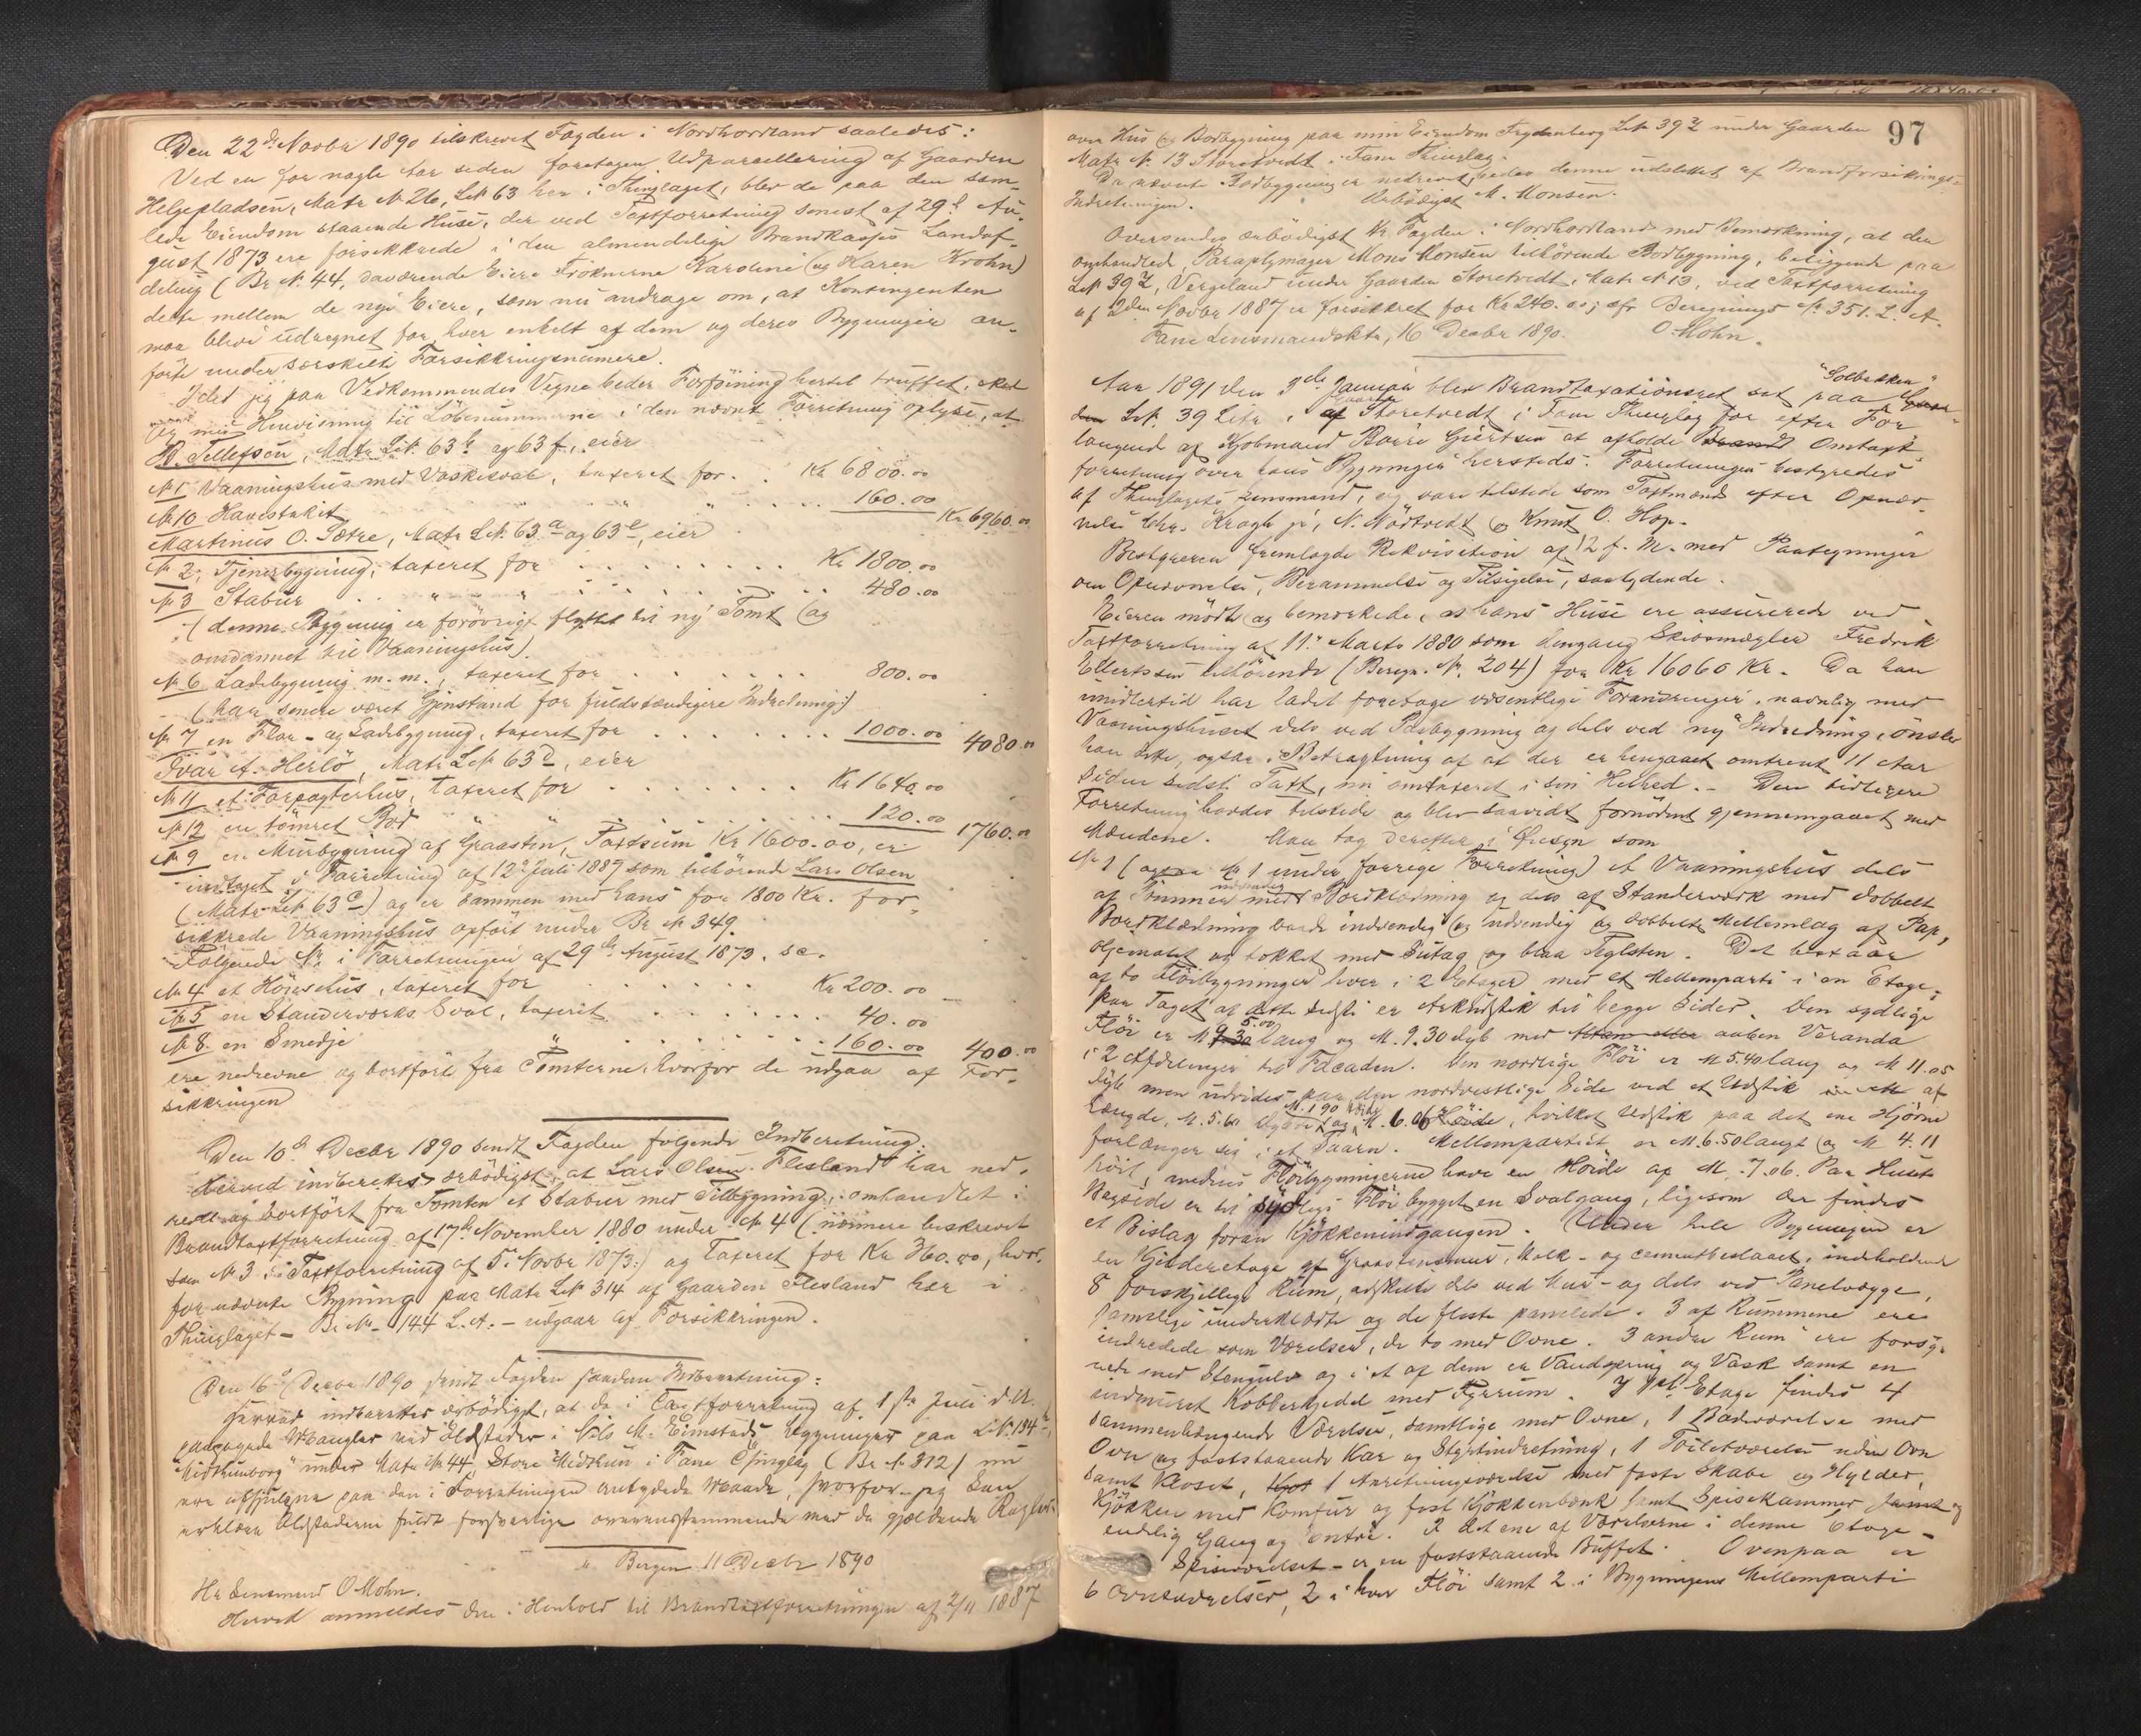 Den 22de Novbr 1890 tilskrevet Fogden i Nordhordland saaledes:
Ved en for nogle Aar siden foretagen Udparcellering af Gaarden
Helgepladsen, Matr № 26, L.№ 63 her i Thinglaget, blev de paa den sam-
lede Eiendom staaende Huse, der ved Taxtforretning senest af 29de Au-
gust 1873 ere forsikkrede i den almindelige Brandkasses Landaf-
deling (Br. №. 44, daværende Eiere Frøknerne Karoline og Karen Krohn)
delte mellem de nye Eiere, som nu andrage om, at Kontingenten
maa blive udregnet for hver enkelt af dem og deres Bygninger an-
førte under særskilt Forsikkringsnumere.
Idet jeg paa Vedkommendes Vegne beder Forføining hertil truffet, skal
jeg med Henvisning til Løbenummerne i den nævnte Forretning oplyse, at
B. Tellefsen, Matr L.№ 63b og 63f, eier
№ 1 Vaaningshus med Vaskeval, taxeret for . . Kr 6800.00
№ 10 Havestakit " " . . . 160.00 Kr 6960.00
Martinus O. Sætre, Matr L.№ 63a og 63e, eier
№ 2, Fjøsbygning, taxeret for . . . . . Kr 1800.00
№ 3 Stabur . . " " " . . . . . 480.00
(denne Bygning er forøvrigt flyttet til ny Tomt og
omdannet til Vaaningshus)
№ 6 Ladebygning m. m., taxeret for . . . . . 800.00
(har senere været Gjenstand for fuldstændigere Indretning)
№ 7 en Flor- og Ladebygning, taxeret for . . . . . 1000.00 4080.00
Ivar A. Herlø, Matr L.№ 63d, eier
№ 11 et Forpagterhus, taxeret for . . . . . Kr 1640.00
№ 12 en tømret Bod " " . . . . . 120.00 1760.00
№ 9 en Murbygning af Graasten, Taxtsum Kr 1600.00, er
indtaget i Forretning af 12te Juli 1887 som tilhørende Lars Olsen
(Matr L.№ 63c) og er sammen med hans for 1800 Kr. for-
sikkrede Vaaningshus opført under Br № 349.
Følgende № i Forretningen af 29de August 1873, sc.
№ 4 et Hønsehus, taxeret for . . . . . Kr 200.00
№ 5 en Standerværks Sval, taxeret . . . . . 40.00
№ 8 en Smedje " . . . . . 160.00 400.00
ere nedrevne og bortførte fra Tomterne, hvorfor de udgaa af For-
sikkringen
Den 10de Decbr 1890 sendt Fogden følgende Indberetning.
Herved indberettes ærbødigst, at Lars Olsen Flesland har ned-
revet og bortført fra Tomten et Stabur med Tilbygning, omhandlet i
Brandtaxtforretning af 17de November 1880 under № 4 (nærmere beskrevet
som № 3 i Taxtforretning af 5te Novbr 1873) og taxeret for Kr 360.00, hvor-
for nævnte Bygning paa Matr L№ 314 af Gaarden Flesland her i
Thinglaget – Br.№ 144 L.A. – udgaar af Forsikkringen.
Den 16de Decbr 1890 sendt Fogden saadan Indberetning:
Herved indberettes ærbødigst, at de i Taxtforretning af 1ste Juli d. A.
paapegede Mangler ved Ildsteder i Nils M. Eimstads Bygninger paa L.№. 134
"Midthunborg" under Matr № 44 Store Midthun i Fane Thinglag (Br. № 312) nu
ere afhjulpne paa den i Forretningen antydede Maade, hvorfor jeg kan
erklære Ildstederne fuldt forsvarlige overensstemmende med de gjældende Regler.
Bergen 11 Decbr 1890
Hr Lensmand O Mohn.
Herved anmeldes den i Henhold til Brandtaxtforretningen af 2/11 1887
97
over Hus og Bodbygning paa min Eiendom Frydenberg L.№ 39 under Gaarden
Matr № 13 Storetvedt i Fane Thinglag.
Da nævnte Bodbygning er nedrevet bedes denne udslettet af Brandforsikrings-
Indretningen. Ærbødigst M. Monsen.
Oversendes ærbødigst Hr Fogden i Nordhordland med Bemærkning, at den
omhandlede, Paraplymager Mons Monsen tilhørende Bodbygning, beliggende paa
L№ 39, Vergeland under Gaarden Storetvedt, Matr № 13, ved Taxtforretning
af 2den Novbr 1887 er forsikkret for Kr 240.00; cfr Beregnings № 351. L. A.
Fane Lensmandsktr, 16 Decbr 1890. O. Mohn.
Aar 1891 den 3die Januar blev Brandtaxationsret sat paa "Solbakken"
L.№. 39 Litr. i af Gaarden Storetvedt i Fane Thinglag for efter For-
langende af Kjøbmand Børre Giertsen at afholde Omtaxt-
forretning over hans Bygninger hersteds. Forretningen bestyredes
af Thinglagets Lensmand, og vare tilstede som Taxtmænd efter Opnæv-
nelse Chr. Kragh jr, N. Nøstvedt og Knut O. Hop.
Bestyreren fremlagde Rekvisition af 12 f. M. med Paategninger
om Opnævnelse, Berammelse og Tilsigelse, saalydende.
Eieren mødte og bemærkede, at hans Huse ere assurerede ved
Taxtforretning af 11te Marts 1880 som dengang Skibsmægler Fredrik
Ellertsen tilhørende (Beregn. №. 204) for Kr 16060 Kr. Da han
imidlertid har ladet foretage væsentlige Forandringer, navnlig med
Vaaningshuset dels ved Paabygning og dels ved ny Indredning, ønsker
han dette, ogsaa i Betragtning af at der er hengaaet omtrent 11 Aar
siden sidste Taxt, nu omtaxeret i sin Helhed. – Den tidligere
Forretning havdes tilstede og blev saavidt fornødent gjennemgaaet med
Mændene. Man tog derefter i Øiesyn som
№ 1 (ogsaa № 1 under forrige Forretning) et Vaaningshus dels
af Tømmer med udvendig Bordklædning og dels af Standerværk med dobbelt
Bordklædning baade indvendig og udvendig og dobbelt Mellemlag af Pap,
oljemalet og tækket med Sutag og blaa Teglsten. Det bestaar
af to Fløibygninger hver i 2 Etager med et Mellemparti i en Etage;
paa Taget af dette sidste er Arkudstik til begge Sider. Den sydlige
Fløi er M 5.00 lang og M. 9.30 dyb med aaben Veranda
i 2 Afdelinger til Facaden. Den nordlige Fløi er M 5.40 lang og M 11.05
dyb men udvides paa den nordvestlige Side ved et Udstik af
Længde, M. 5.60 Dybde M. 1.90 og M. 6.06 Høide, hvilket Udstik paa det ene Hjørne
forlænger sig i et Taarn. Mellempartiet er M. 6.50 langt og M 4.11
høit, medens Fløibygningerne have en Høide af M. 7.06. Paa Husets
Bagside er til sydlige Fløi bygget en Svalgang, ligesom der findes
et Bislag foran Kjøkkenindgangen. Under hele Bygningen er
en Kjelderetage af Graastensmur, kalk- og cementbeslaaet, indholdende
8 forskjellige Rum, adskilte dels ved Mur- og dels ved Panelvægge,
samtlige underklædte og de fleste panelede. 3 af Rummene ere
indredede som Værelser, de to med Ovne. 3 andre Rum ere forsy-
nede med Stengulv og i et af dem er Vandspring og Vask samt en
indmuret Kobberkjedel med Fyrrum. I 1st Etage findes 4
sammenhængende Værelser, samtlige med Ovne, 1 Badeværelse med
Ovn og faststaaende Kar og Styrtindretning, 1 Toiletværelse uden Ovn
samt Kloset, 1 Anretningsværelse med faste Skabe og Hylder,
Kjøkken med Komfur og fast Kjøkkenbænk samt Spisekammer og
endelig Gang og Entré. I det ene af Værelserne i denne Etage –
Spiseværelset – er en faststaaende Buffet. Ovenpaa er
6 Ovnsværelser, 2 i hver Fløi samt 2 i Bygningens Mellemparti